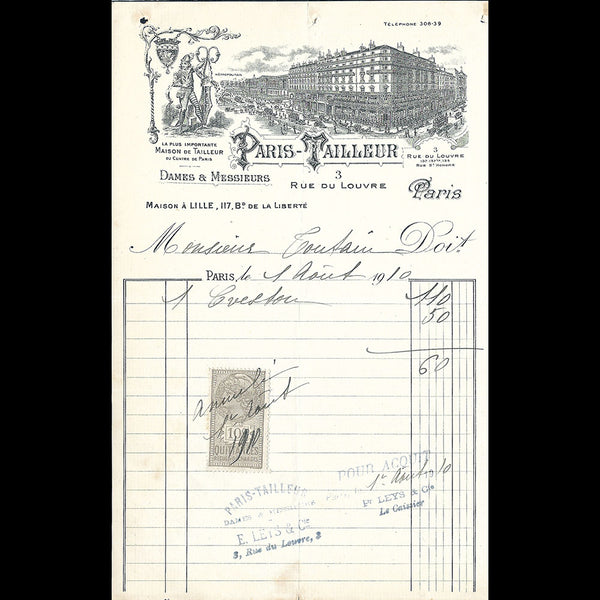 TÉLÉPHONE 308-39
MÉTROPOLITAIN
LA PLUS IMPORTANTE
MAISON DE TAILLEUR
DU CENTRE DE PARIS
PARIS-TAILLEUR
DAMES & MESSIEURS
3
RUE DU LOUVRE
3
RUE DU LOUVRE
RUE St HONORÉ
Paris
MAISON À LILLE, 117, Bd DE LA LIBERTÉ
Monsieur Toutain Doit
PARIS, le 1 Août 1910
1 110
50
60
Annulé
1er Août
1910
10c
QUITTANCES
PARIS-TAILLEUR
DAMES & MESSIEURS
E. LEYS & Cie
3, Rue du Louvre, 3
POUR ACQUIT
1er Août 1910
Pr LEYS & Cie
Le Caissier